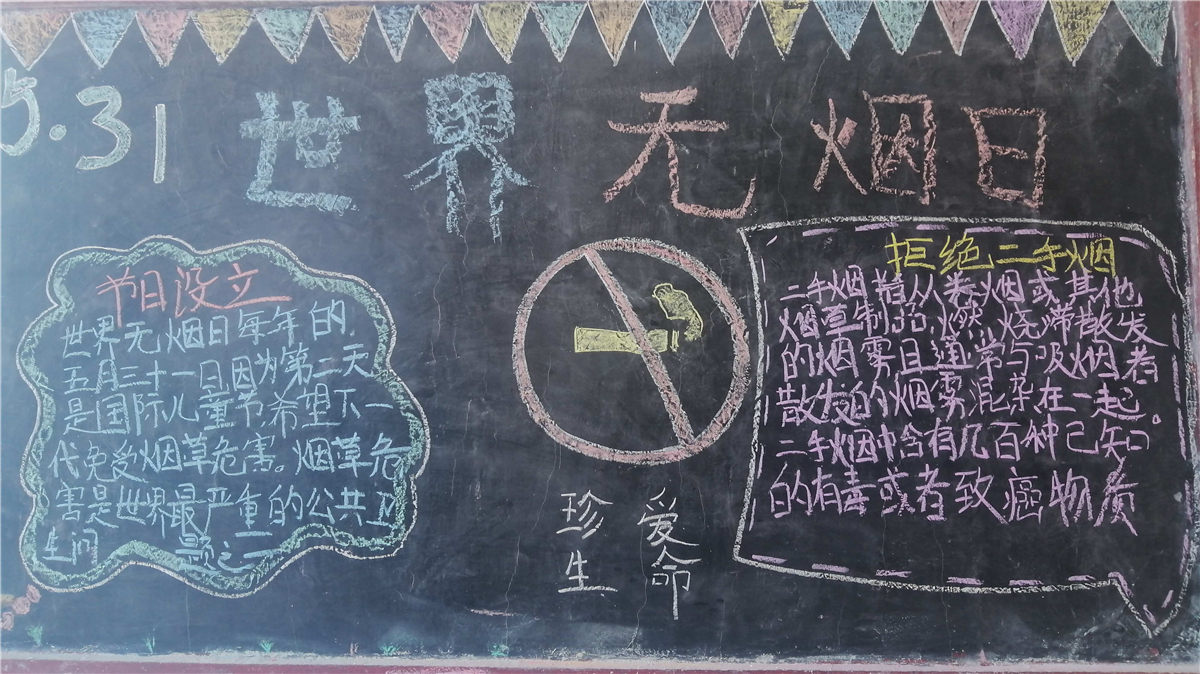 5.31 世界无烟日
节日设立
世界无烟日每年的
五月三十一日,因为第二天
是国际儿童节,希望下一
代免受烟草危害。烟草危
害是世界最严重的公共卫
生问题之一
珍爱
生命
拒绝二手烟
二手烟指从卷烟或其他
烟草制品燃烧端散发
的烟雾且通常与吸烟者
散发的烟雾混杂在一起。
二手烟中含有几百种已知
的有毒或者致癌物质